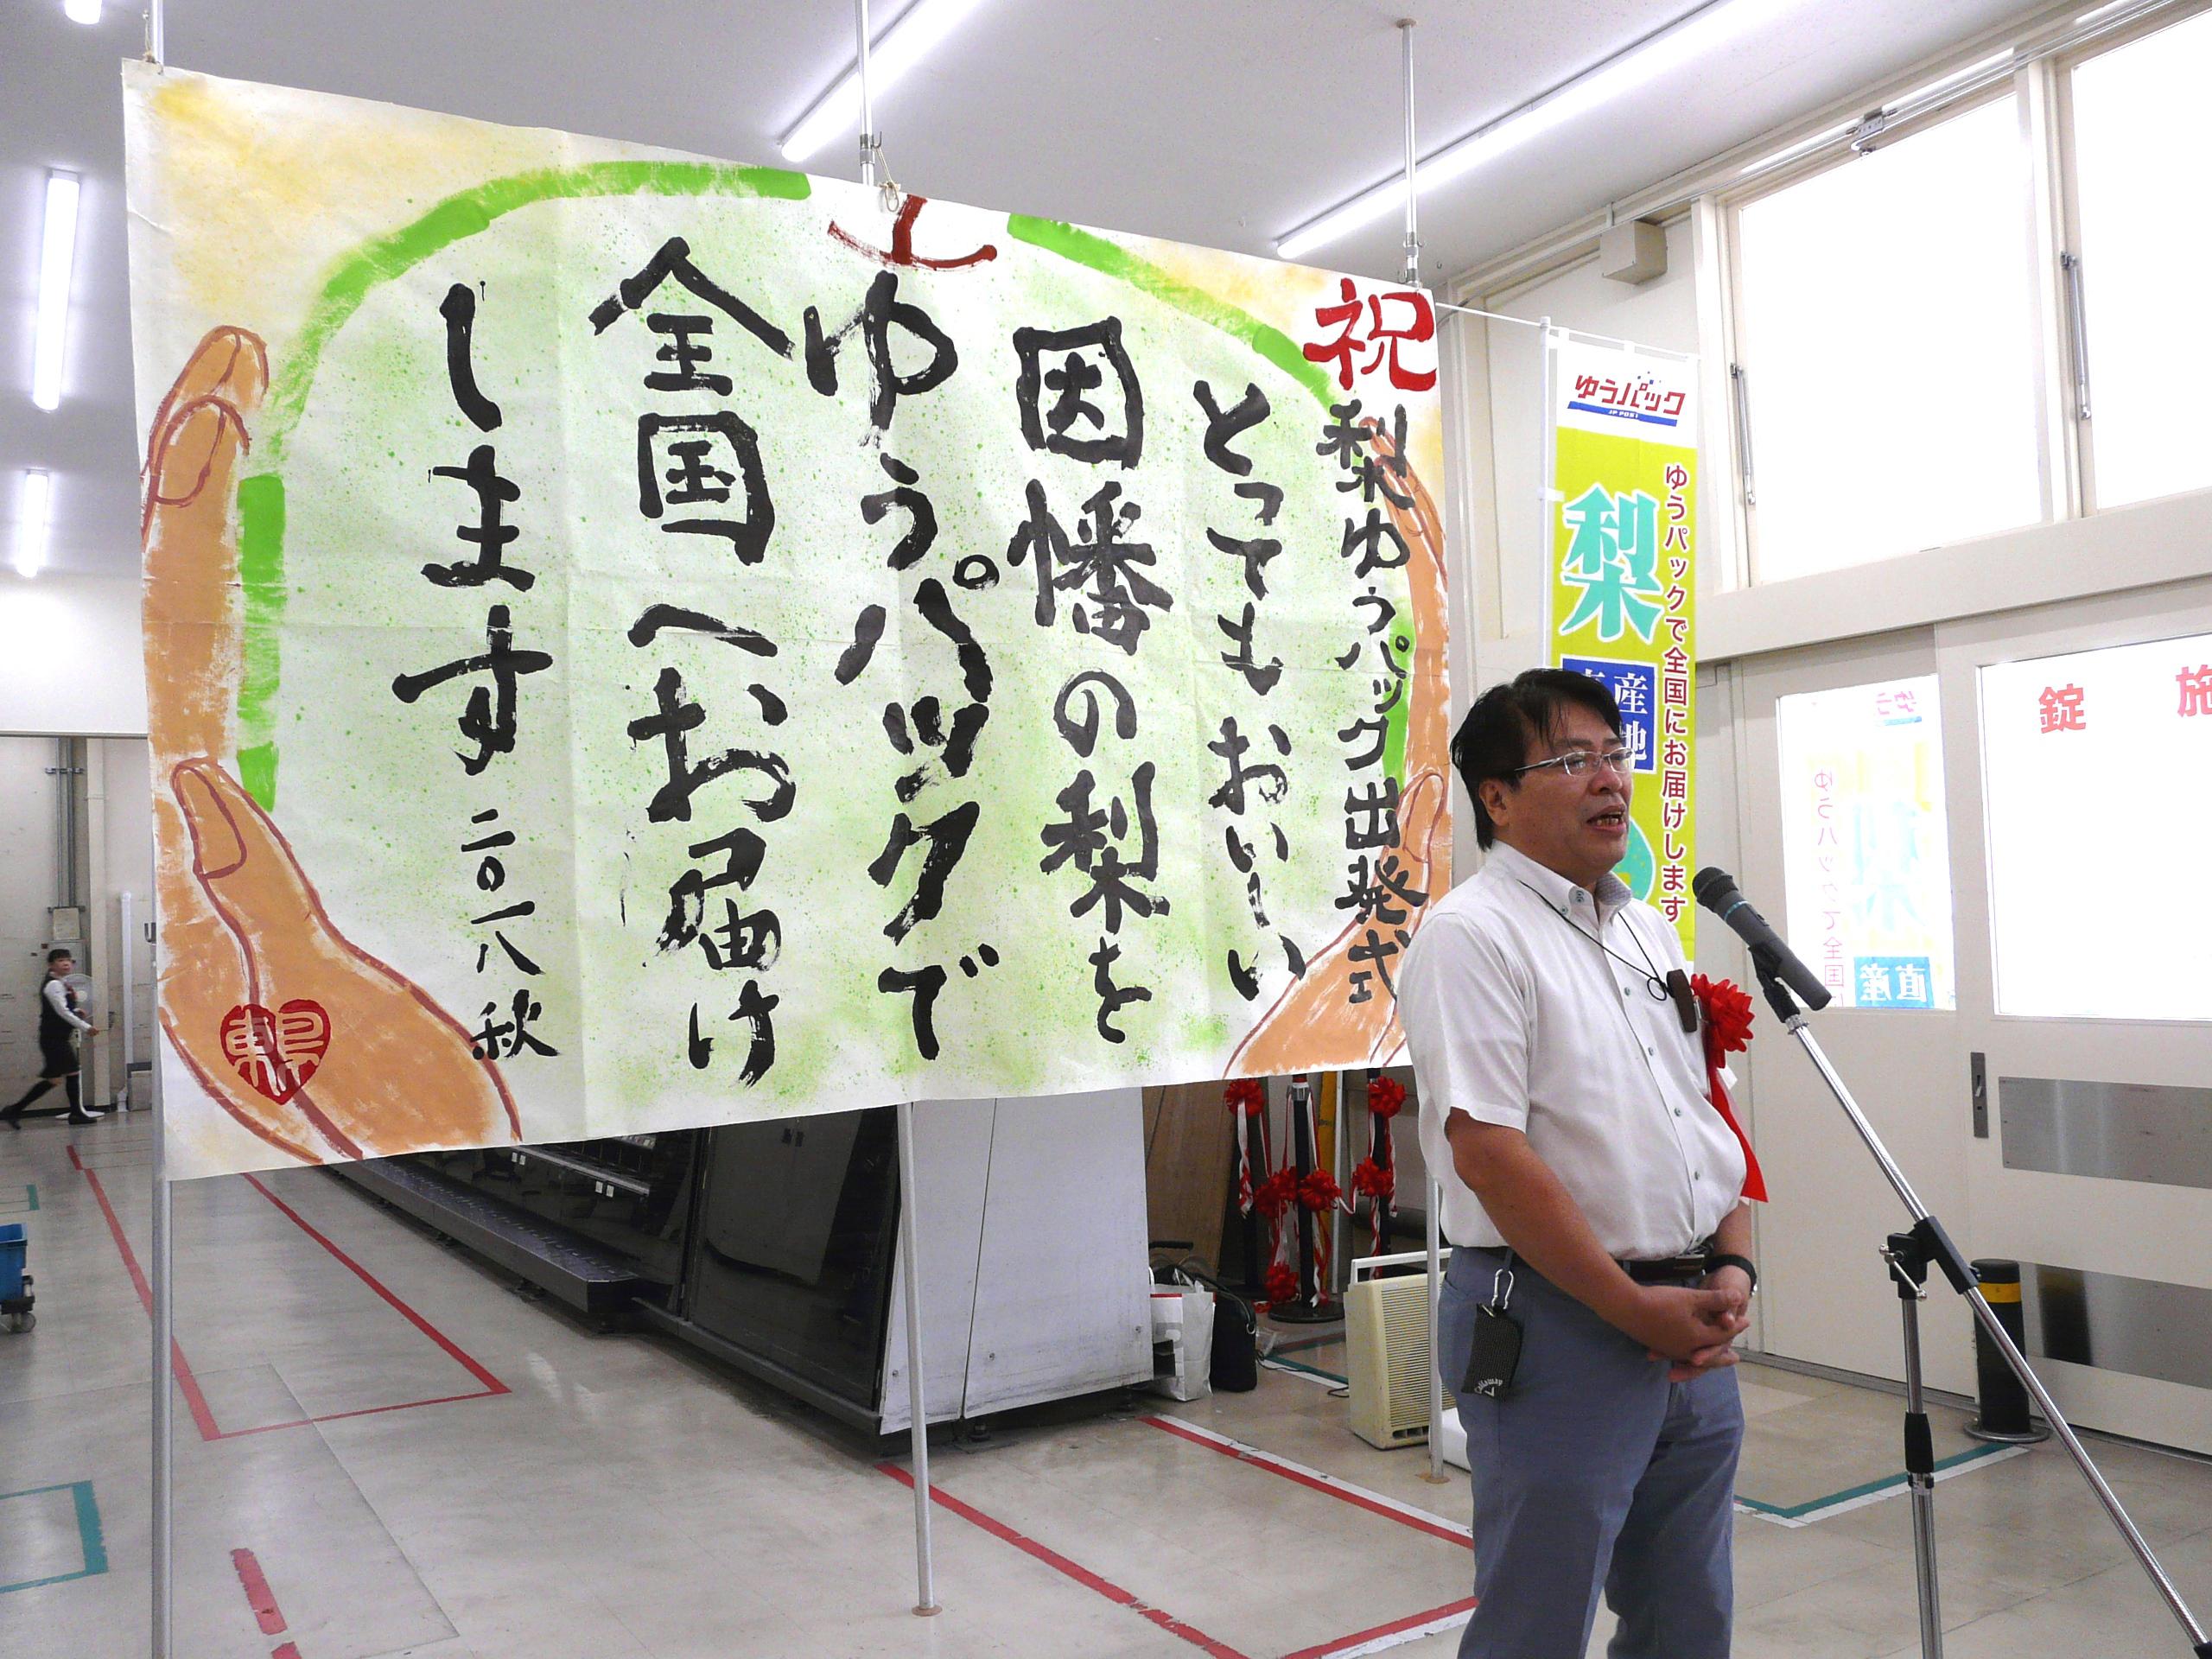 祝
梨ゆうパック出発式
とってもおいーい
因幡の梨を
ゆうパックで
全国へお届け
します
二〇一八秋
ゆうパック
JP POST
ゆうパックで全国にお届けします
梨
産地
施
錠
直産
Callaway